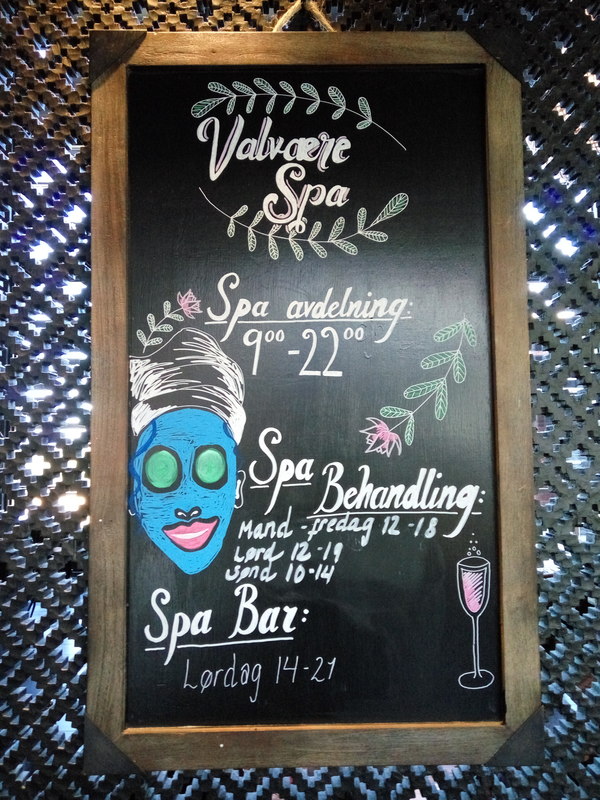 Valvære
Spa
Spa avdelning:
9⁰⁰-22⁰⁰
Spa
Behandling:
Mand - fredag 12-18
Lørd 12-19
Sønd 10-14
Spa Bar:
Lørdag 14-21